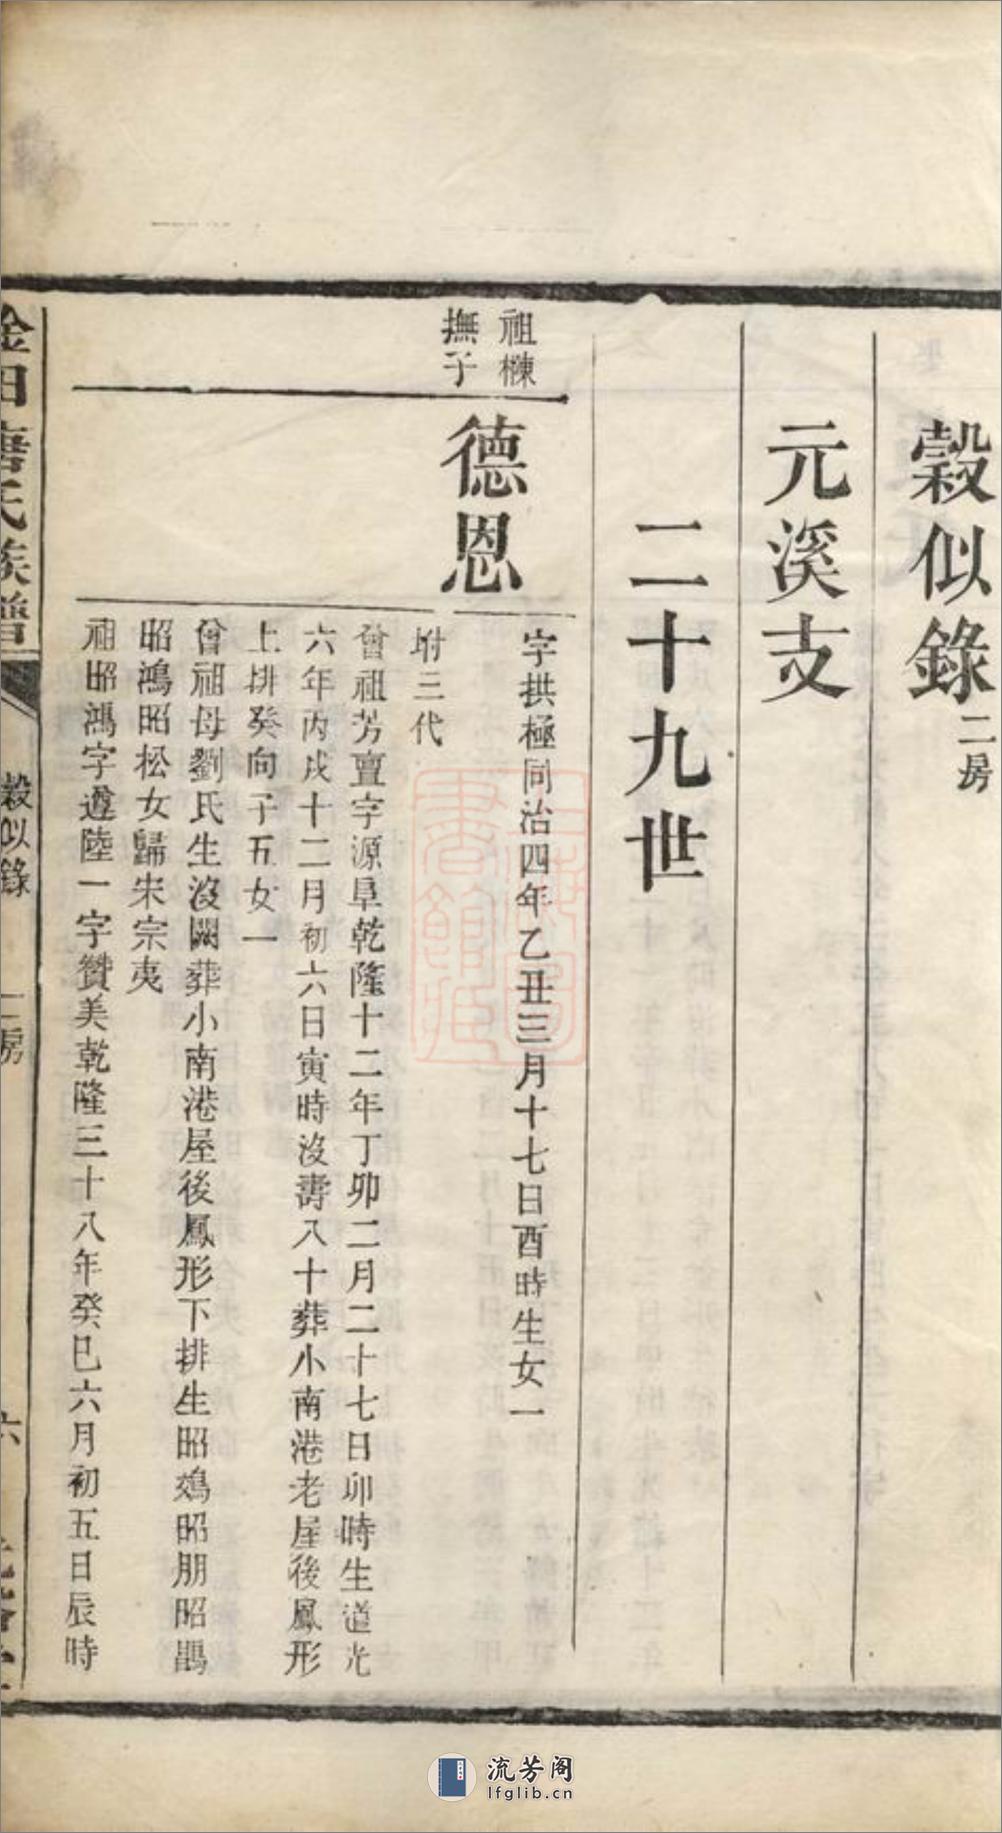 穀似錄二房
元溪支
二十九世
祖楝
撫子
德恩
字拱極同治四年乙丑三月十七日酉時生女一
坿三代
曾祖芳亶字源阜乾隆十二年丁卯二月二十七日卯時生道光
六年丙戌十二月初六日寅時沒壽八十葬小南港老屋後鳳形
上排癸向子五女一
曾祖母劉氏生沒闕葬小南港屋後鳳形下排生昭鵁昭朋昭鵾
昭鴻昭松女歸宋宗夷
祖昭鴻字遵陸一字贊美乾隆三十八年癸巳六月初五日辰時
金田唐氏族譜
穀似錄
二房
六
流芳阁
lfglib.cn